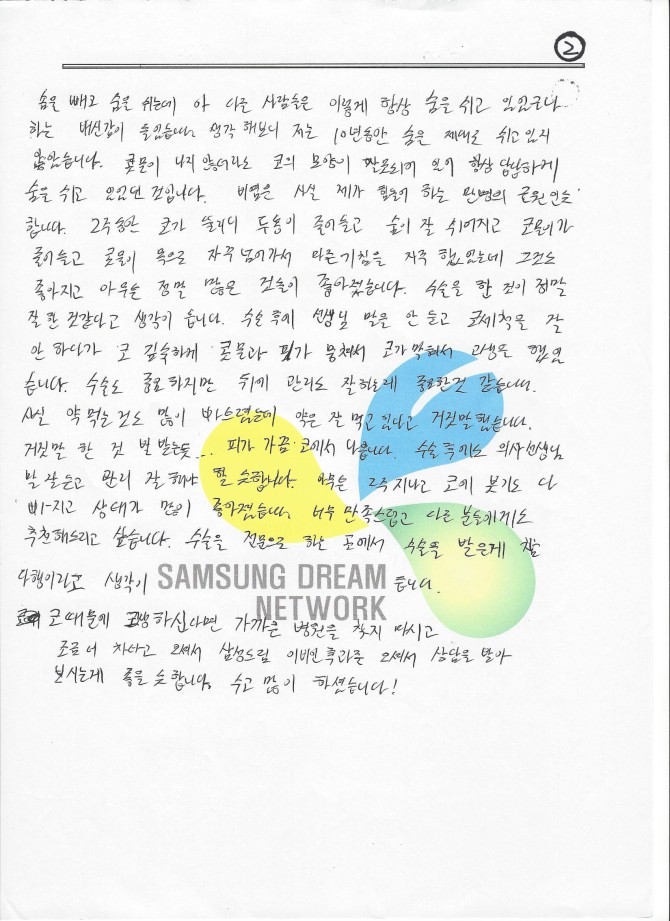 ②
솜을 빼고 숨을 쉬는데 아 다른 사람들은 이렇게 항상 숨을 쉬고 있었구나
하는 배신감이 들었습니다. 생각해보니 저는 10년동안 숨을 제대로 쉬고 있지
않았습니다. 콧물이 나지 않더라도 코의 모양이 잘못되어 있어 항상 답답하게
숨을 쉬고 있었던 것입니다. 비염은 사실 제가 힘들어 하는 만병의 근원인듯
합니다. 2주동안 코가 뚫리니 두통이 줄어들고 숨이 잘 쉬어지고 코골이가
줄어들고 콧물이 목으로 자꾸 넘어가서 마른기침을 자주 했었는데 그것도
좋아지고 아무튼 정말 많은 것들이 좋아졌습니다. 수술을 한 것이 정말
잘 한 것같다고 생각이 듭니다. 수술 후에 선생님 말을 안 듣고 코세척을 잘
안 하다가 코 깊숙하게 콧물과 피가 뭉쳐서 코가 막혀서 고생도 했었
습니다. 수술도 중요하지만 뒤에 관리도 잘하는게 중요한것 같습니다.
사실 약 먹는것도 많이 빠뜨렸는데 약은 잘 먹고 있다고 거짓말했습니다.
거짓말 한 것 벌 받는듯... 피가 가끔 코에서 나옵니다. 수술 후에는 의사선생님
말 잘듣고 관리 잘 해야 할 듯합니다. 아무튼 2주 지나고 코에 붓기도 다
빠지고 상태가 많이 좋아졌습니다. 너무 만족스럽고 다른 분들에게도
추천해드리고 싶습니다. 수술을 전문으로 하는 곳에서 수술을 받은게 참
다행이라고 생각이 듭니다.
SAMSUNG DREAM
NETWORK
코때문에 고생하신다면 가까운 병원을 찾지 마시고
조금 더 차타고 오셔서 삼성드림 이비인후과로 오셔서 상담을 받아
보시는게 좋을 듯합니다. 수고 많이 하셨습니다!